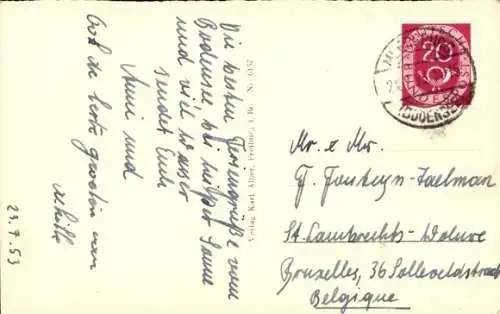 Die besten Feriengrüße vom
Bodensee, bei heißer Sonne
und viel Wasser
sendet Euch
Anni und
Ook de beste groeten van
23.7.53
Verlag Karl Alber, Freiburg i. Br. Nr.
DEUTSCHE BUNDESPOST
20
(BODENSEE)
Mr. & Mr.
F. Fonteyn-Taelman
St. Lambrechts-Woluwe
Bruxelles, 36 Solleveldstraat
Belgique